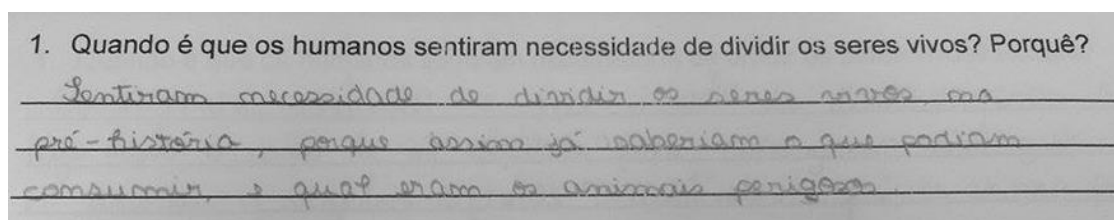 1. Quando é que os humanos sentiram necessidade de dividir os seres vivos? Porquê?
Sentiram necessidade de dividir os seres vivos na
pré-história, porque assim já saberiam o que podiam
consumir, e quaf eram os animais perigosos